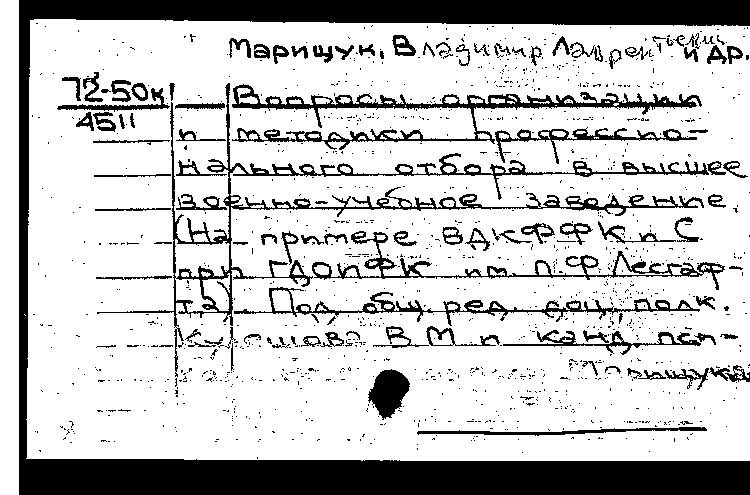 Марищук, Владимир Лаврентьевич и др.
72-50к
4511
Вопросы организации
и методики профессио-
нального отбора в высшее
военно-учебное заведение.
(На примере ВДКФФК и С
при ГДОИФК им. П.Ф Лесгаф-
та). Под общ. ред. доц., полк.
Кулешова В М и канд. псп-
Марищука